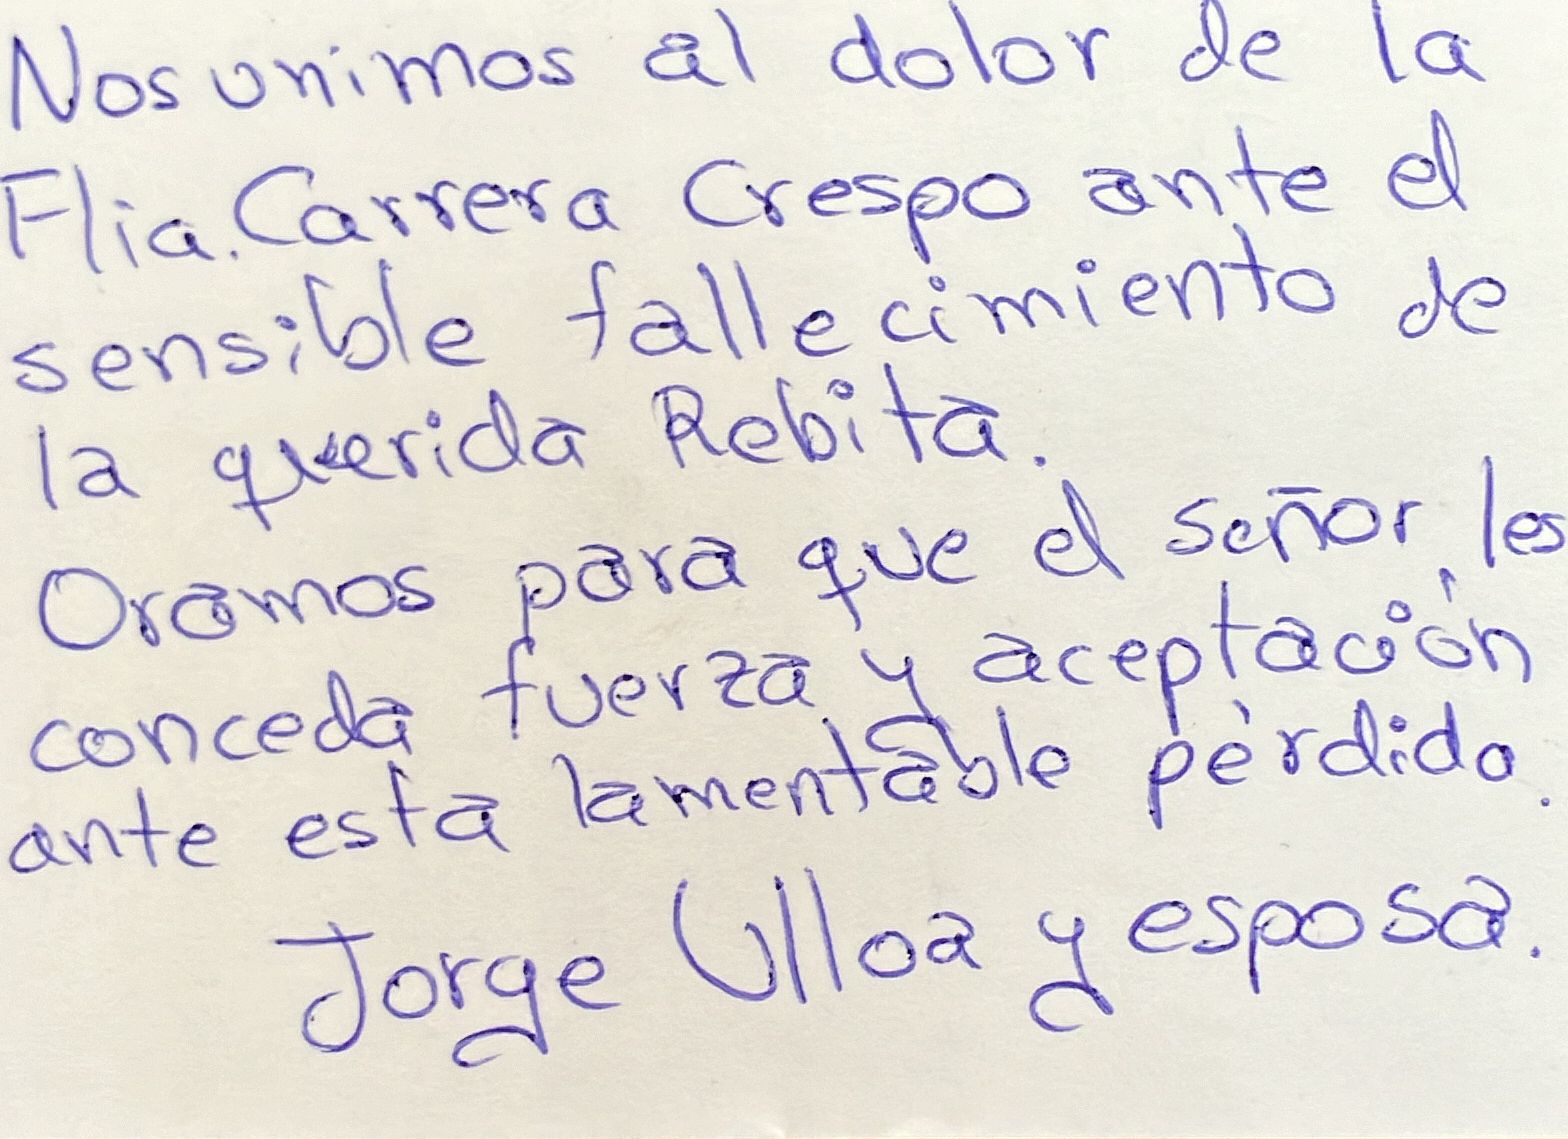 Nos unimos al dolor de la
Flia. Carrera Crespo ante el
sensible fallecimiento de
la querida Rebita.
Oramos para que el señor les
conceda fuerza y aceptación
ante esta lamentable pérdida.
Jorge Ulloa y esposa.